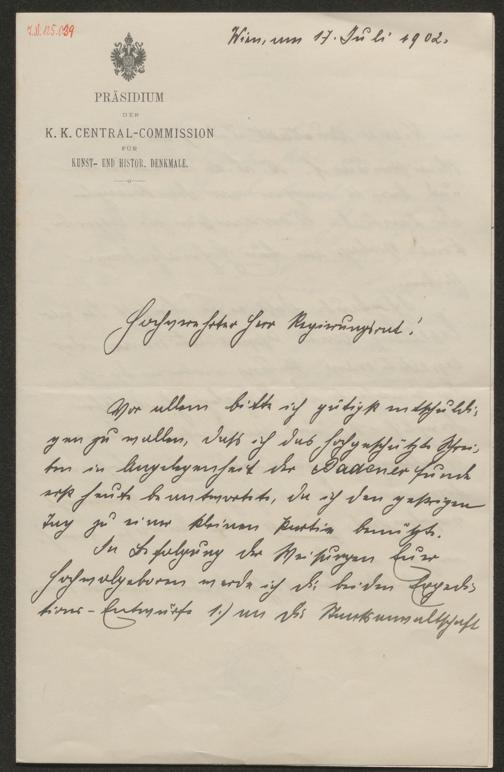 J.N. 125.029
Wien, am 17. Juli 1902.
PRÄSIDIUM
DER
K. K. CENTRAL-COMMISSION
FÜR
KUNST- UND HISTOR. DENKMALE.
Hochverehrter Herr Regierungsrat!
Vor allem bitte ich gütigst entschuldi-
gen zu wollen, daß ich das hochgeschätzte Schrei-
ben in Angelegenheit der Badener Funde
erst heute beantwortete, da ich den gestrigen
Tag zu einer kleinen Partie benützte.
In Befolgung der Weisungen Euer
Hochwolgeboren werde ich die beiden Expedi-
tions-Entwürfe 1.) an die Staatsanwaltschaft